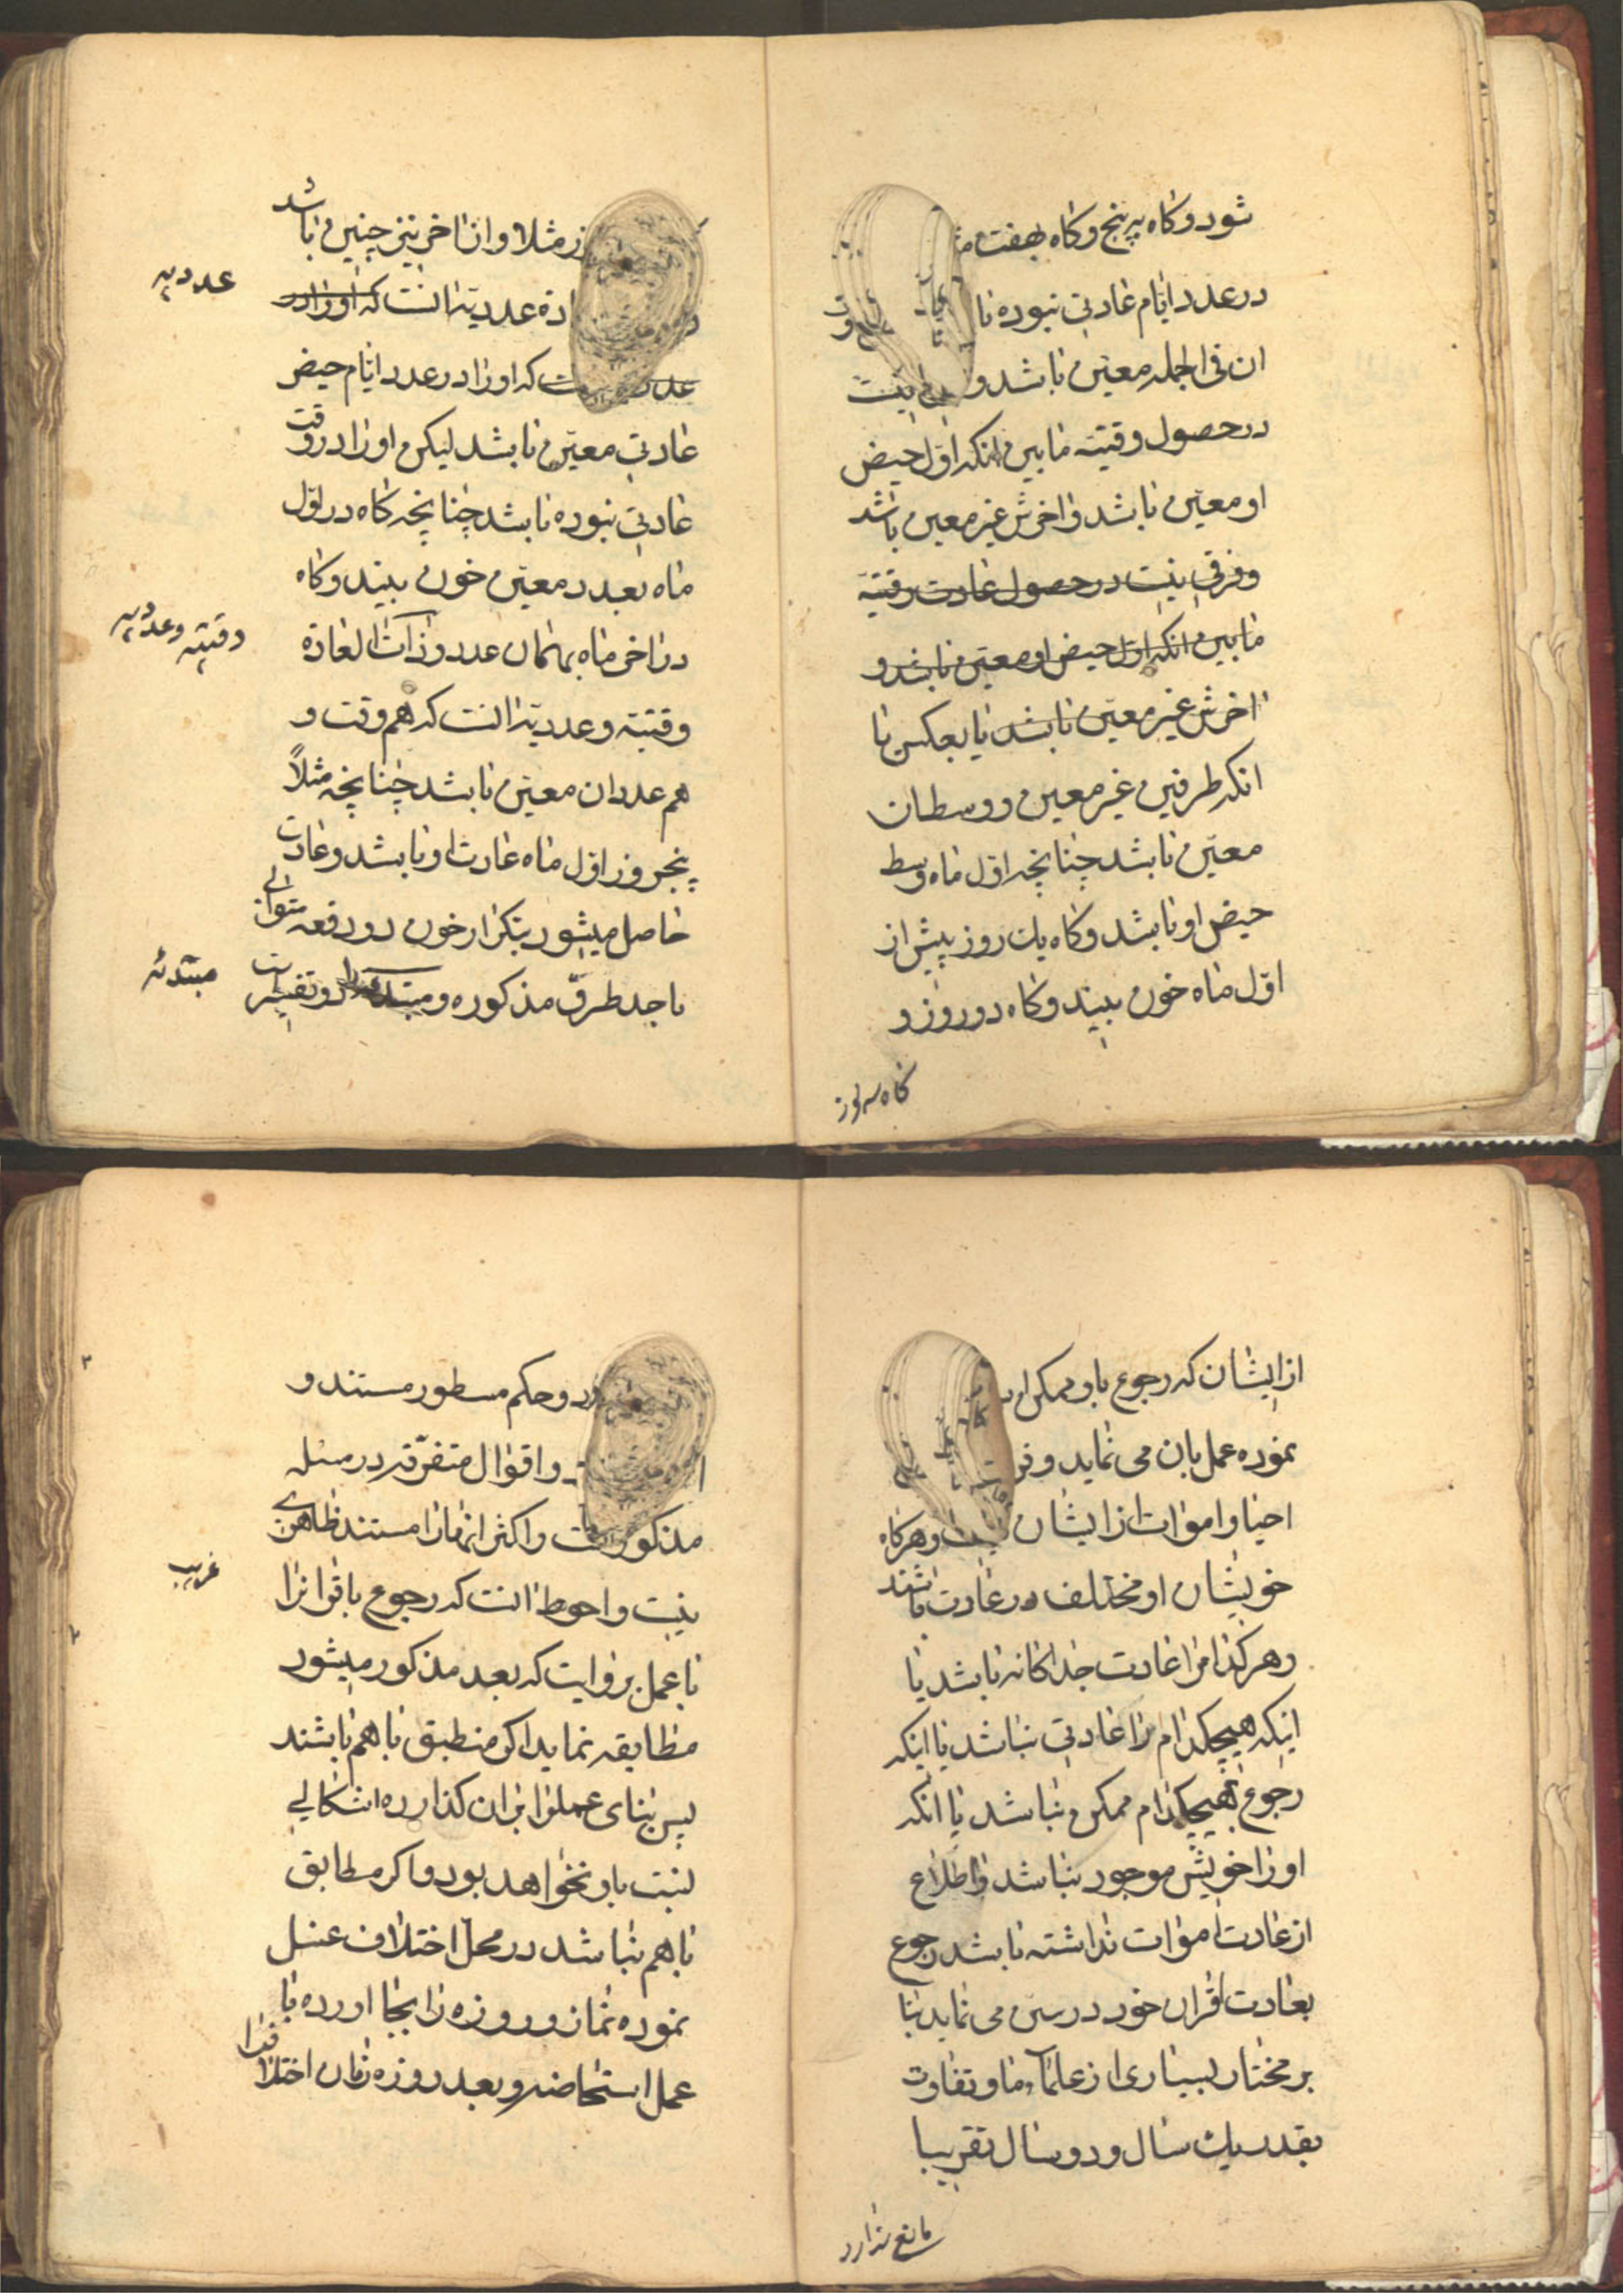 شود و کاه به پنج و کاه بهفت
در عدد ایام عادتی نبوده با
ان فی الجمله معین باشد و نیست
در حصول وقتیه مابین انکه اول حیض
او معین باشد و اخرش غیر معین باشد
و فرقی نیست در حصول عادت وقتیه
مابین انکه اول حیض او معین باشد و
اخرش غیر معین باشد یا بعکس یا
انکه طرفین غیر معین و وسط ان
معین باشد چنانچه اول ماه وسط
حیض او باشد و کاه یک روز پیش از
اول ماه خون ببیند و کاه دو روز و
کاه سه روز
مثلا و از اخر نیز چنین باشد
عددیه
عددیه انست که او را در
که او را در عدد ایام حیض
عادتی معین باشد لیکن او را در وقت
عادتی نبوده باشد چنانچه کاه در اول
ماه بعدد معین خون ببیند و کاه
وقتیه و عددیه
در اخر ماه بهمان عدد و ذات العادة
وقتیه و عددیه انست که هم وقت و
هم عدد ان معین باشد چنانچه مثلاً
پنجروز اول ماه عادت او باشد و عادت
حاصل میشود بتکرار خون دو دفعه متوالی
مبتدئه
باحد طرق مذکوره و
از ایشان که رجوع باو ممکن
نموده عمل بان می نماید و
احیا و اموات از ایشان نیست و هرکاه
خویشان او مختلف در عادت باشند
و هر کدام را عادت جداکانه باشد یا
اینکه هیچکدام را عادتی نباشد یا اینکه
رجوع بهیچکدام ممکن نباشد یا انکه
او را خویش موجود نباشد و اطلاع
از عادت اموات نداشته باشد رجوع
بعادت اقران خود در سن می نماید بنا
بر مختار بسیاری از علماء ما و تفاوت
بقدر یک سال و دو سال تقریبا
مانع ندارد
در و حکم مسطور مستند و
و اقوال متفرقه در مسئله
مذکور است و اکثر انها را مستند ظاهری
غریب
نیست و احوط انست که رجوع باقوانرا
با عمل بروایت که بعد مذکور میشود
مطابقه نماید اکر منطبق با هم باشند
پس بنای عملرا بران کذارده اشکالی
نسبت باو نخواهد بود و اکر مطابق
با هم نباشد در محل اختلاف غسل
نموده نماز و روزه را بجا اورده با
عمل استحاضه و بعد روزه زمان اختلاف را